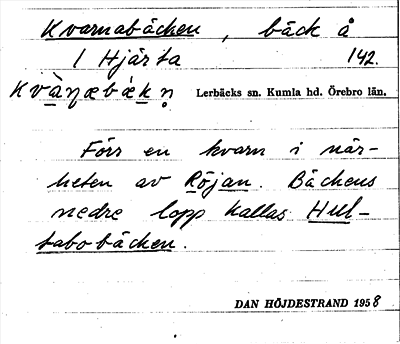 Kvarnabäcken, bäck å
1 Hjärta 142.
Kvàŋæbǽkṇ Lerbäcks sn. Kumla hd. Örebro län.
Förr en kvarn i när-
heten av Röjan. Bäckens
nedre lopp kallas Hul-
tabobäcken.
DAN HÖJDESTRAND 1958